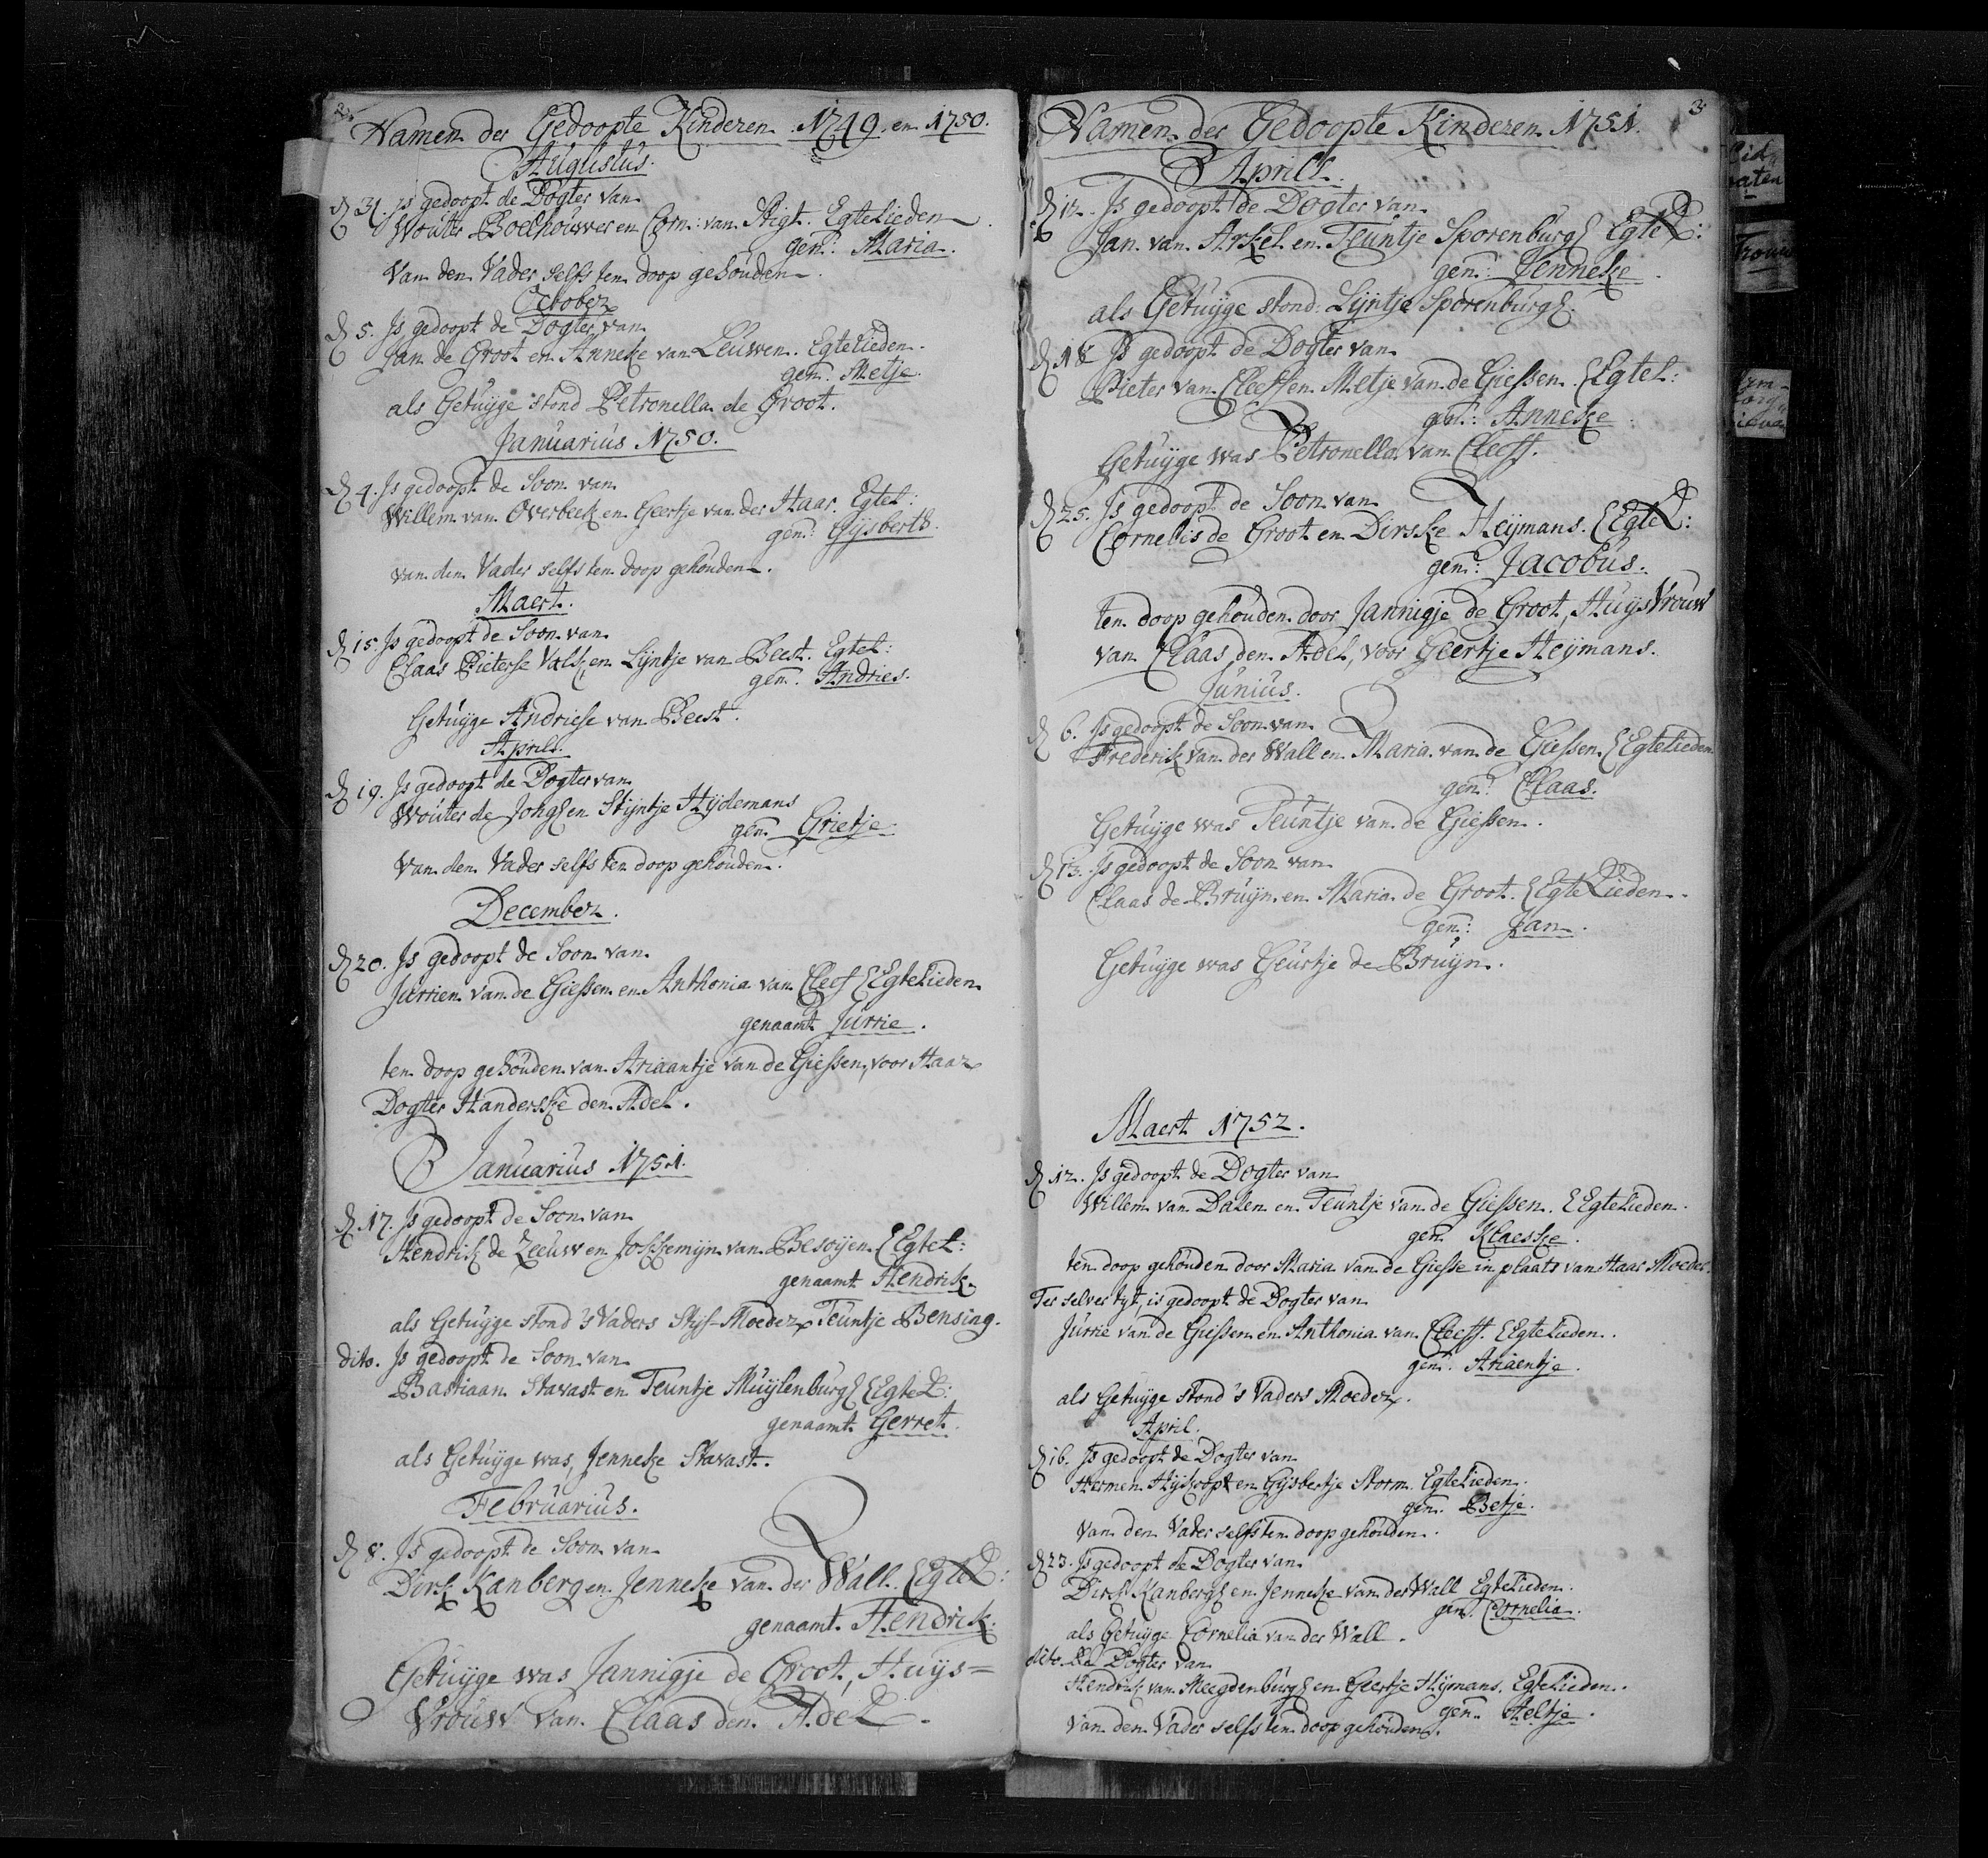 2.
Namen der Gedoopte Kinderen 1749. en 1750.
Augustus.
d 31. Is gedoopt de Dogter van
Wouter Boelhouwer en Corn: van Stigt. Egtelieden
gen: Maria.
Van den Vader selfs ten doop gehouden.
October
d 5. Is gedoopt de Dogter van
Jan de Groot en Anneke van Leuwen. Egtelieden.
gen: Metje.
als Getuyge stond Petronella de Groot.
Januarius 1750.
d 4. Is gedoopt de Soon van
Willem van Overbeek en Geertje van der Haar. Egtel:
gen: Gijsbert.
van den Vader selfs ten doop gehouden.
Maert.
d 15. Is gedoopt de Soon van
Claas Pieterse Valk, en Lijntje van Beest. Egtel:
gen: Andries.
Getuyge Andriese van Beest.
April.
d 19. Is gedoopt de Dogter van
Wouter de Jongh en Stijntje Hijdemans
gen. Grietje
Van den Vader selfs ten doop gehouden.
December.
d 20. Is gedoopt de Soon van
Jurrien van de Giessen en Anthonia van Cleef Egtelieden
genaamt Jurrie.
ten doop gehouden van Ariaantje van de Giessen, voor Haar
Dogter Handerske den Adel.
Januarius 1751.
d 17. Is gedoopt de Soon van
Hendrik de Zeeuw en Jokkemijn van Besoijen Egtel:
genaamt Hendrik
als Getuyge stond 's Vaders Styf-Moeder Teuntje Bensing.
dito. Is gedoopt de Soon van
Bastiaan Stavast en Teuntje Muijlenburgh Egtel:
genaamt Gerret.
als Getuyge was, Jenneke Stavast.
Februarius.
d 8. Is gedoopt de Soon van
Dirk Kanberg en Jenneke van der Wall. Egtel:
genaamt. Hendrik.
Getuyge was Jannigje de Groot, Huys=
Vrouw van Claas den Adel.
3
Namen der Gedoopte Kinderen 1751.
April.
d 12. Is gedoopt de Dogter van
Jan van Arkel en Teuntje Sporenburgh Egtel:
gen: Jenneke.
als Getuyge stond: Lijntje Sporenburgh.
d 18 Is gedoopt de Dogter van
Pieter van Cleeff en Metje van de Giessen. Egtel:
gen: Anneke.
Getuyge was Petronella van Cleeff.
d 25. Is gedoopt de Soon van
Cornelis de Groot en Dirske Heijmans. Egtel:
gen: Jacobus.
ten doop gehouden door Jannigje de Groot, Huys Vrouw
van Claas den Adel, voor Geertje Heijmans.
Junius.
d 6. Is gedoopt de Soon van
Frederik van der Wall en Maria van de Giessen Egtelieden
gen: Claas.
Getuyge was Teuntje van de Giessen.
d 13. Is gedoopt de Soon van
Claas de Bruijn en Maria de Groot. Egtelieden.
gen: Jan.
Getuyge was Geurtje de Bruijn.
Maert 1752.
d 12. Is gedoopt de Dogter van
Willem van Dalen en Teuntje van de Giessen. Egtelieden.
gen. Klaeske.
ten doop gehouden door Maria van de Giesse in plaats van Haar Moeder.
Ter selver tyt, is gedoopt de Dogter van
Jurrie van de Giessen en Anthonia van Cleeff. Egtelieden.
gen: Ariaentje.
als Getuyge stond 's Vaders Moeder.
April.
d 16. Is gedoopt de Dogter van
Hermen Hijkoopt en Gijsbertje Storm. Egtelieden.
gen. Betje.
Van den Vader selfs ten doop gehouden.
d 23. Is gedoopt de Dogter van
Dirk Kanbergh en Jenneke van der Wall Egtelieden.
gen. Cornelia.
als Getuyge Cornelia van der Wall.
dito. De Dogter van
Hendrik van Meegdenburgh en Geertje Hijmans. Egtelieden.
gen: Aeltje.
Van den Vader selfs ten doop gehouden.